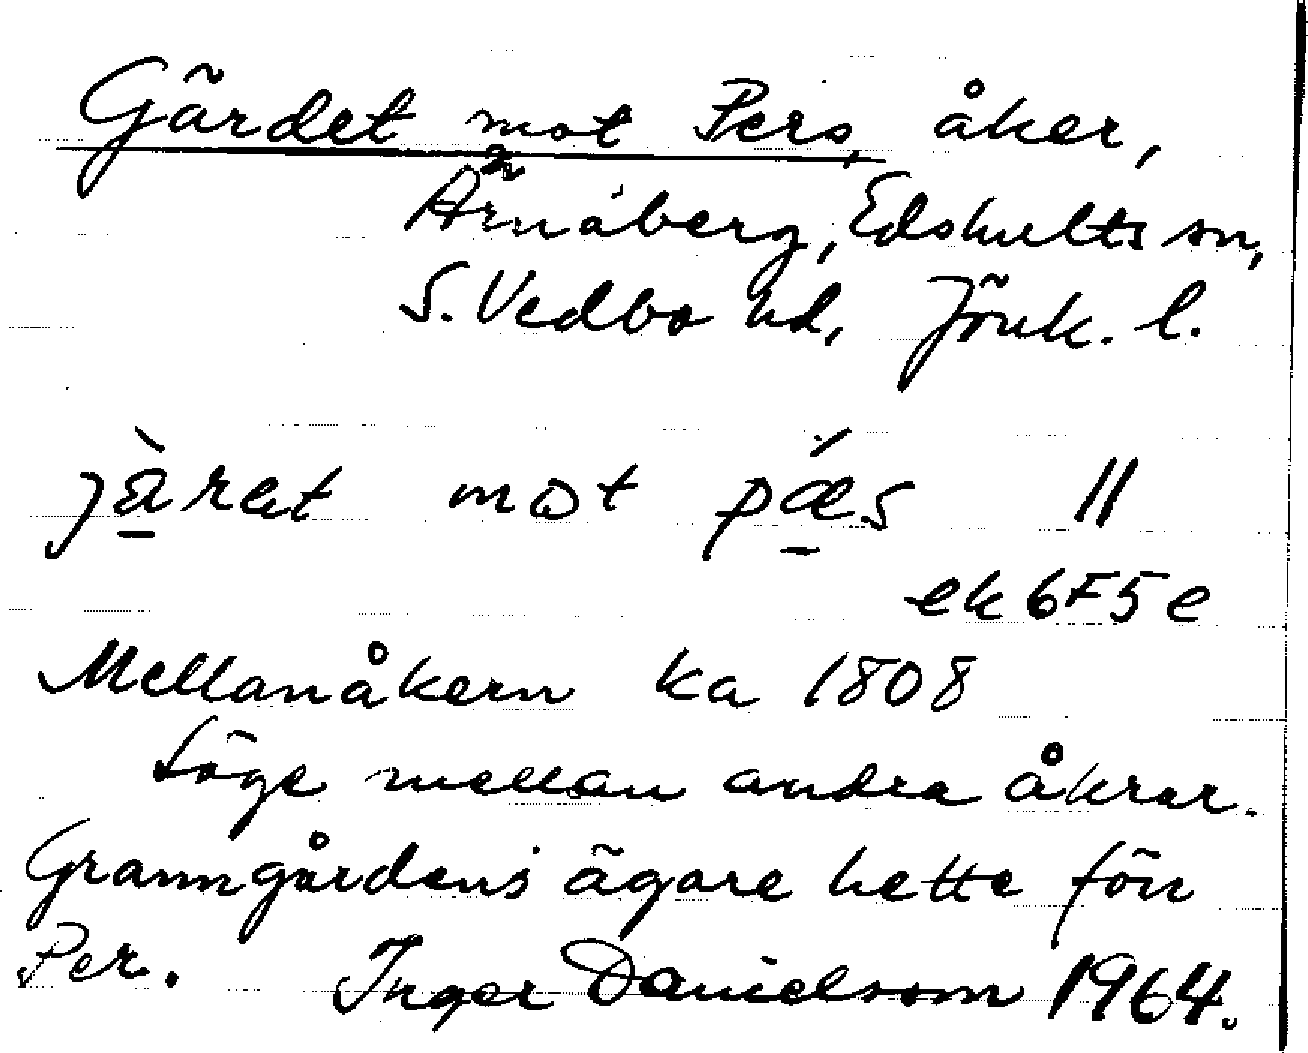 Gärdet mot Pers, åker,
Ärnaberg, Edshults sn,
S. Vedbo hd, Jönk. l.
jä̀ret mot pǽs //
ek 6F5e
Mellanåkern ka 1808
Läge mellan andra åkrar.
Granngårdens ägare hette förr
Per. Inger Danielsson 1964.